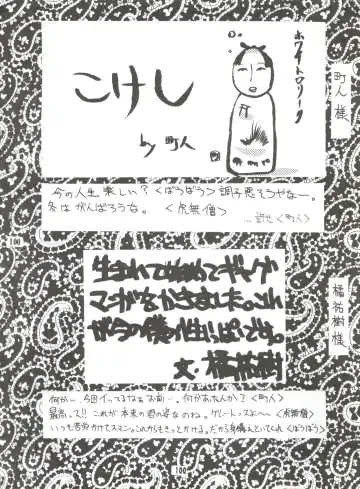 町人様
ホワイトロリータ
こけし
by 町人
今の人生楽しい?<ばうばう>調子悪そうやなー。
冬はがんばろうな。<虎無僧>
…許せ<町人>
100
橘祐樹様
生まれて始めてギャグ
マンガをかきました。これ
が今の僕の精一ぱいです。
文・橘祐樹
何か…今回イッてるなぁお前…。何かあれんか?<町人>
最高ッス!!これが本来の君の姿なのね。グレートっスよ〜<虎無僧>
いつも苦労かけてスマン。これからもきっとかける。だから身構えといてくれ<ばうばう>
100